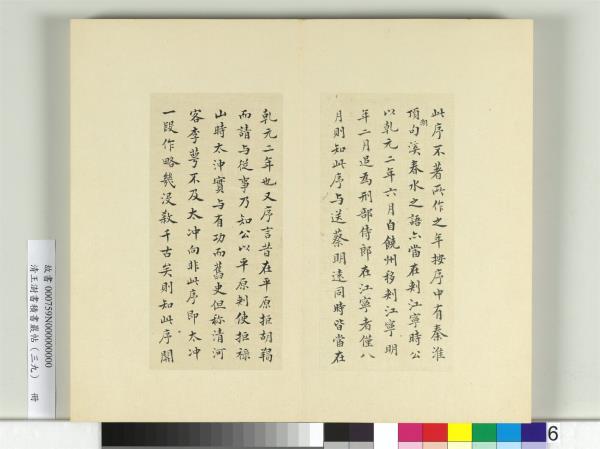 此序不著所作之年按序中有秦淮
頂句溪春水之語亦當在刺江寧時公
湖
以乾元二年六月自饒州移刺江寧明
年二月追為刑部侍郎在江寧者僅八
月則知此序與送蔡明遠同時皆當在
乾元二年也又序言昔在平原拒胡羯
而請与從事乃知公以平原刺使拒祿
山時太沖實与有功而舊史但称清河
客李萼不及太沖向非此序即太沖
一段作略幾沒數千古矣則知此序關
故書 000759N000000000
清王澍書積書巖帖(三九) 冊
6